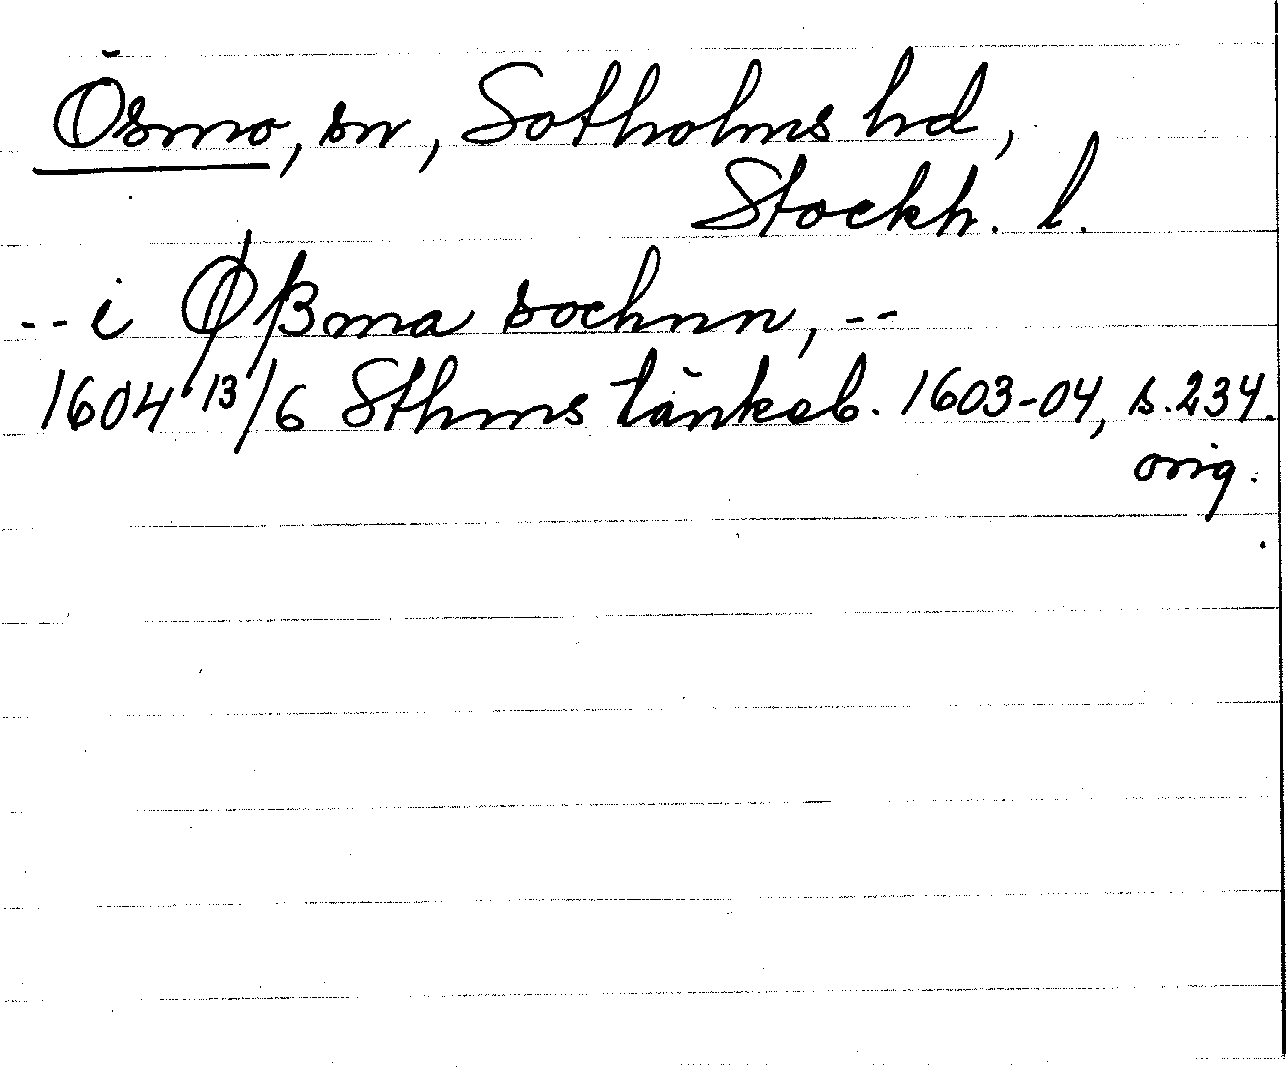 Ösmo, sn, Sotholms hd,
Stockh. l.
-- i Øßma sochnn, --
1604 13/6 Sthms tänkeb. 1603-04, s. 234.
orig.